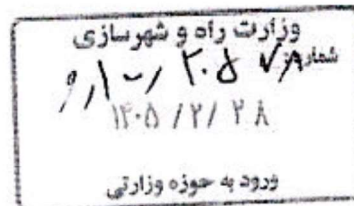 وزارت راه و شهرسازی
شماره
۱۴۰۵ /۲/ ۲۸
ورود به حوزه وزارتی